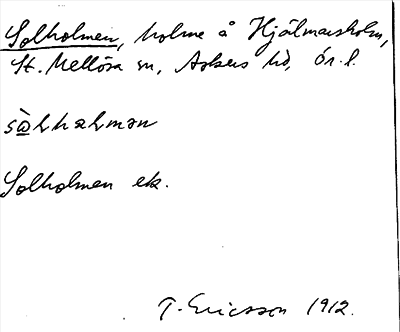 Solholmen, holme å Hjälmarsholm,
St. Mellösa sn, Askers hd, ör. l.
Solholmen ek.
T. Ericsson 1912.